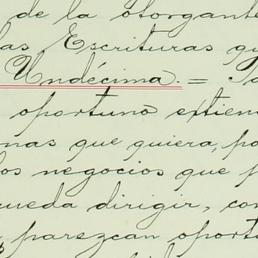 de la otorgante
las Escrituras qu
Undécima. = Pa
oportuno extien
nas que quiera, po
os negocios que p
ueda dirigir, con
parezcan oport